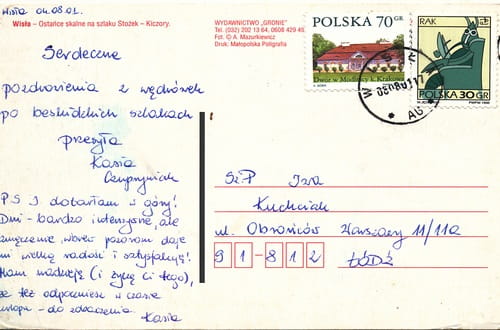 Wisła 04.08.01.
Wisła – Ostańce skalne na szlaku Stożek – Kiczory.
Serdeczne
pozdrowienia z wędrówek
po beskidzkich szlakach
przesyła
Kasia
Czupryniak
P.S. I dotarłam w góry!
Dni – bardzo intensywne, ale
zmęczenie, wbrew pozorom daje
mi wielką radość i satysfakcję!
Mam nadzieję (i życzę Ci tego),
że też odpoczniesz w czasie
urlopu – do zobaczenia
Kasia
WYDAWNICTWO „GRONIE”
Tel. (032) 202 13 64, 0608 429 49
Fot. © A. Mazurkiewicz
Druk: Małopolska Poligrafia
POLSKA 70 GR
Dwór w Modlnicy k. Krakowa
RAK
POLSKA 30 GR
SzP Iza
Kuchciak
ul. Obrońców Warszawy 11/11a
91-812 ŁÓDŹ